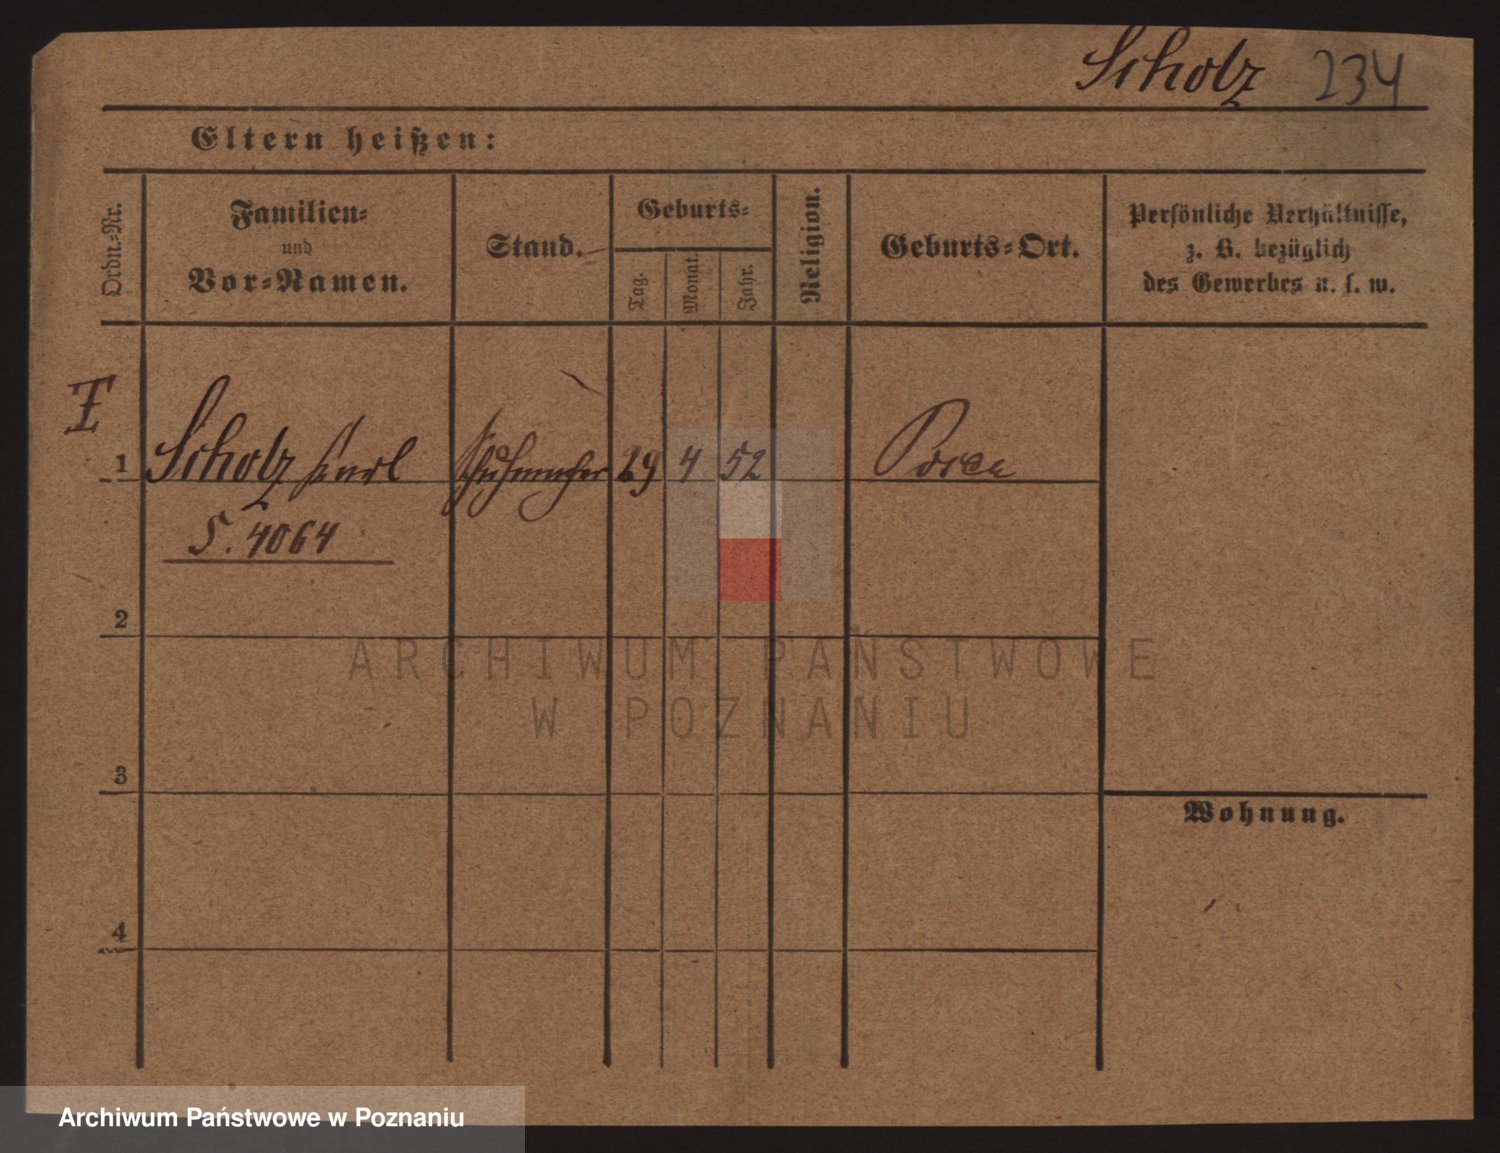 Scholz 234
Eltern heißen:
Ordn.-Nr.
Familien-
und
Vor-Namen.
Stand.
Geburts-
Tag.
Monat.
Jahr.
Religion.
Geburts-Ort.
Persönliche Verhältnisse,
z. B. bezüglich
des Gewerbes u. s. w.
I
1 Scholz Karl Schuhmacher 29 4 52
S. 4064
2
ARCHIWUM PAŃSTWOWE
W POZNANIU
3
Wohnung.
4
Archiwum Państwowe w Poznaniu